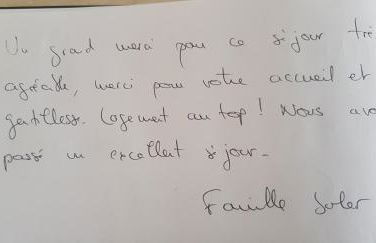 Un grand merci pour ce séjour trè
agréable, merci pour votre accueil et
gentillesse. Logement au top ! Nous avo
passé un excellent séjour.
Famille Soler